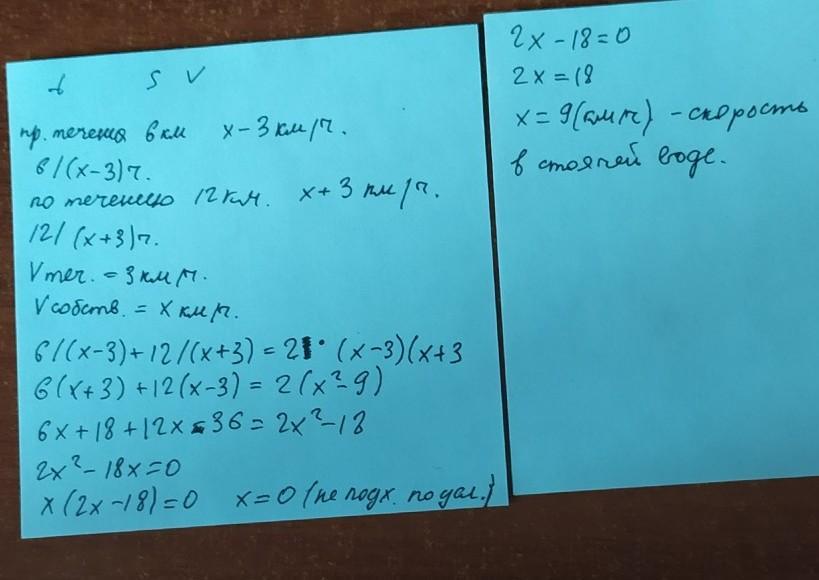 t S V
пр. течения 6 км x-3 км/ч.
6/(x-3)ч.
по течению 12 км. x+3 км/ч.
12/(x+3)ч.
Vтеч. = 3 км/ч.
Vсобств. = x км/ч.
6/(x-3)+12/(x+3)=2 · (x-3)(x+3
6(x+3)+12(x-3)=2(x²-9)
6x+18+12x-36=2x²-18
2x²-18x=0
x(2x-18)=0 x=0 (не подх. по усл.)
2x-18=0
2x=18
x=9(км/ч) - скорость
в стоячей воде.